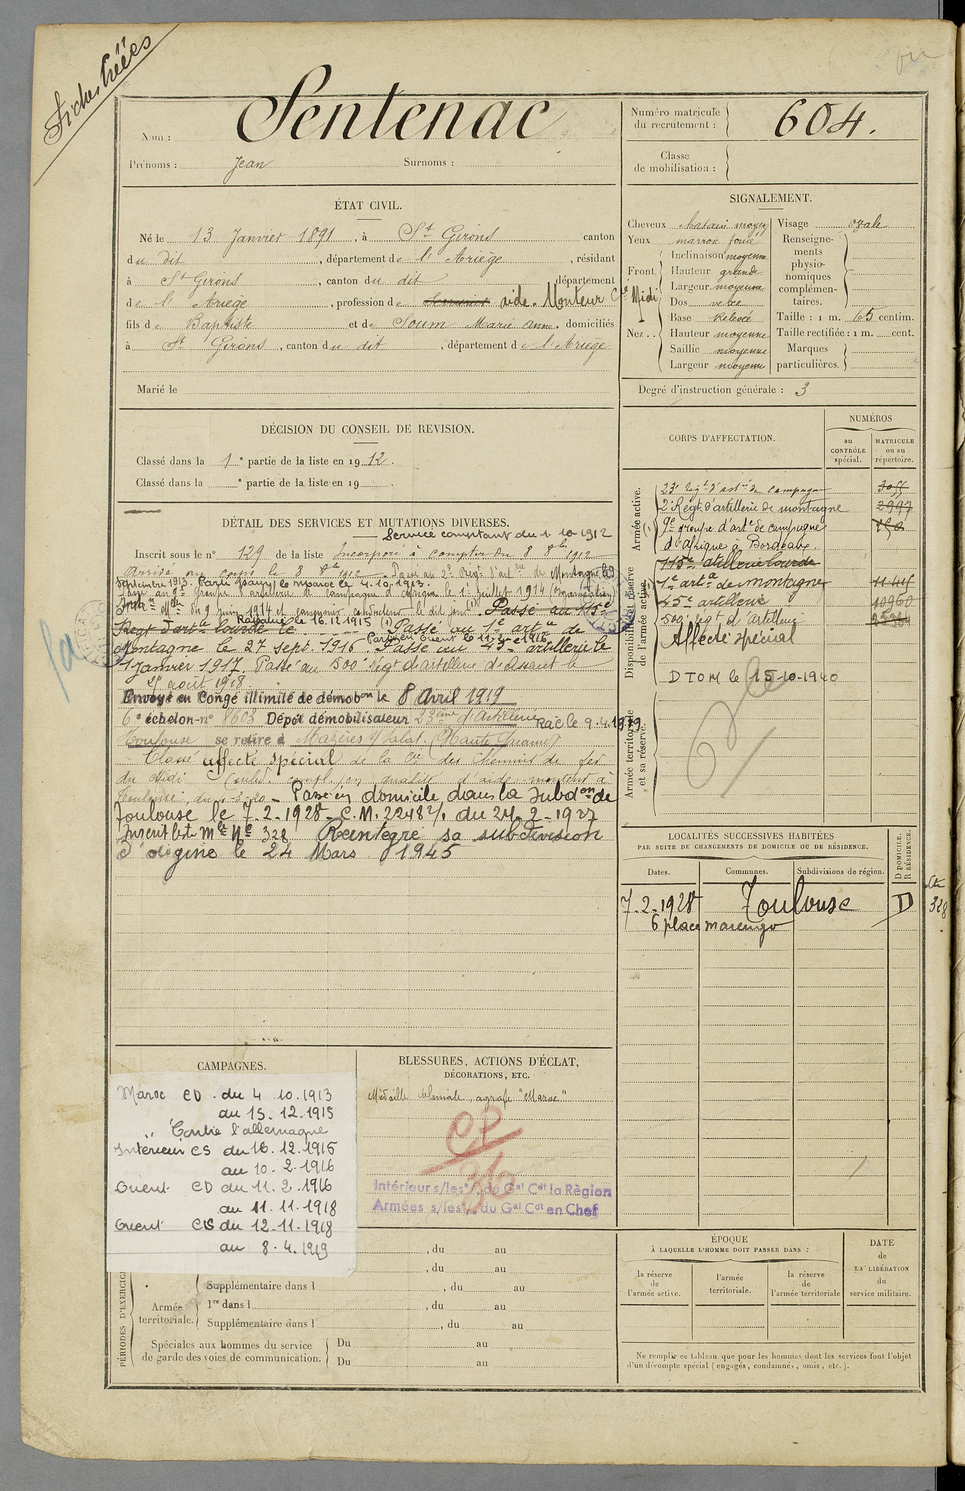 Fiches Créées
Nom : Sentenac
Prénoms : Jean Surnoms :
Numéro matricule du recrutement : 604.
Classe de mobilisation :
ÉTAT CIVIL.
Né le 13 Janvier 1891, à St Girons canton
du dit, département de l'Ariège, résidant
à St Girons, canton du dit département
de l'Ariège, profession de aide-Monteur Cie Midi
fils de Baptiste et de Soum Marie Anne, domiciliés
à St Girons, canton du dit, département de l'Ariège
Marié le
SIGNALEMENT.
Cheveux chatain moyen
Yeux marron foncé
Front. Inclinaison moyenne
Hauteur grande
Largeur moyenne
Nez .. Dos
Base Relevée
Hauteur moyenne
Saillie moyenne
Largeur moyenne
Visage ovale
Renseignements physionomiques complémentaires.
Taille : 1 m. 65 centim.
Taille rectifiée : 1 m. cent.
Marques particulières.
Degré d'instruction générale : 3
DÉCISION DU CONSEIL DE REVISION.
Classé dans la 1e partie de la liste en 1912.
Classé dans la e partie de la liste en 19
DÉTAIL DES SERVICES ET MUTATIONS DIVERSES.
Service comptant du 1-10-1912
Inscrit sous le n° 129 de la liste Incorporé à compter du 8 8bre 1912
Arrivé au corps le 8 8bre 1912 Passé au 2e Régt d'artie de Montagne le
Septembre 1913. Parti pour le Maroc le 4.10.1913.
Passé au 9e groupe d'artillerie de campagne d'Afrique le 1er Juillet 1914
du 9 Juin 1914 et conducteur le dit jour (1) Passé au 115e
Régt d'artie lourde le
Rapatrié le 16.12.1915 (1) Passé au 1e artie de
Parti en Orient le 11-2-1916
Montagne le 27 sept. 1916 Passé au 45e artillerie le
1 janvier 1917. Passé au 500e régt d'artillerie d'assaut le
août 1918.
Envoyé en Congé illimité de démobon le 8 Avril 1919
6e échelon n° 8603 Dépôt démobilisateur 23ème d'Artillerie Rac le 9.4.1919
Toulouse se retire à Mazères s/Salat (Haute Garonne)
Classé affecté spécial de la Cie des Chemins de fer
du Midi en qualité d'aide monteur à
Toulouse, du Passe en domicile dans la subdon de
Toulouse le 7-2-1928 C.M. 22482/1 du 24-2-1927
Inscrit list Mle No 328 Réintégré sa subdivision
d'origine le 24 Mars 1945
CORPS D'AFFECTATION.
NUMÉROS
au CONTRÔLE spécial.
MATRICULE ou au répertoire.
Armée active.
23e Régt d'artie de campagne
2e Régt d'artillerie de montagne 2997
9e groupe d'artie de campagne
d'Afrique à Bordeaux.
Disponibilité et réserve de l'armée active.
115e artillerie lourde
1e artie de montagne
45e artillerie 10960
500e régt d'artillerie
Affecté spécial
DTOM le 15-10-1940
Armée territoriale et sa réserve.
LOCALITÉS SUCCESSIVES HABITÉES
PAR SUITE DE CHANGEMENTS DE DOMICILE OU DE RÉSIDENCE.
Dates. Communes. Subdivisions de région. D DOMICILE. R RÉSIDENCE.
7-2-1928 Toulouse D
6 place marengo
328
CAMPAGNES.
Maroc CD. du 4.10.1913
au 15.12.1915
Contre l'allemagne
Intérieur CS du 16.12.1915
au 10.2.1916
Orient CD du 11.2.1916
au 11.11.1918
Orient CS du 12.11.1918
au 8.4.1919
BLESSURES, ACTIONS D'ÉCLAT,
DÉCORATIONS, ETC.
Médaille coloniale, agrafe "Maroc"
Intérieur s/les o/. du Gal Cdt la Règion
Armées s/les o/. du Gal Cdt en Chef
PÉRIODES D'EXERCICES
, du au
, du au
Supplémentaire dans l , du au
Armée territoriale. 1re dans l , du au
Supplémentaire dans l , du au
Spéciales aux hommes du service de garde des voies de communication. Du au
Du au
ÉPOQUE
À LAQUELLE L'HOMME DOIT PASSER DANS :
la réserve de l'armée active.
l'armée territoriale.
la réserve de l'armée territoriale
DATE de LA LIBÉRATION du service militaire.
Ne remplir ce tableau que pour les hommes dont les services font l'objet
d'un décompte spécial (engagés, condamnés, omis, etc.).